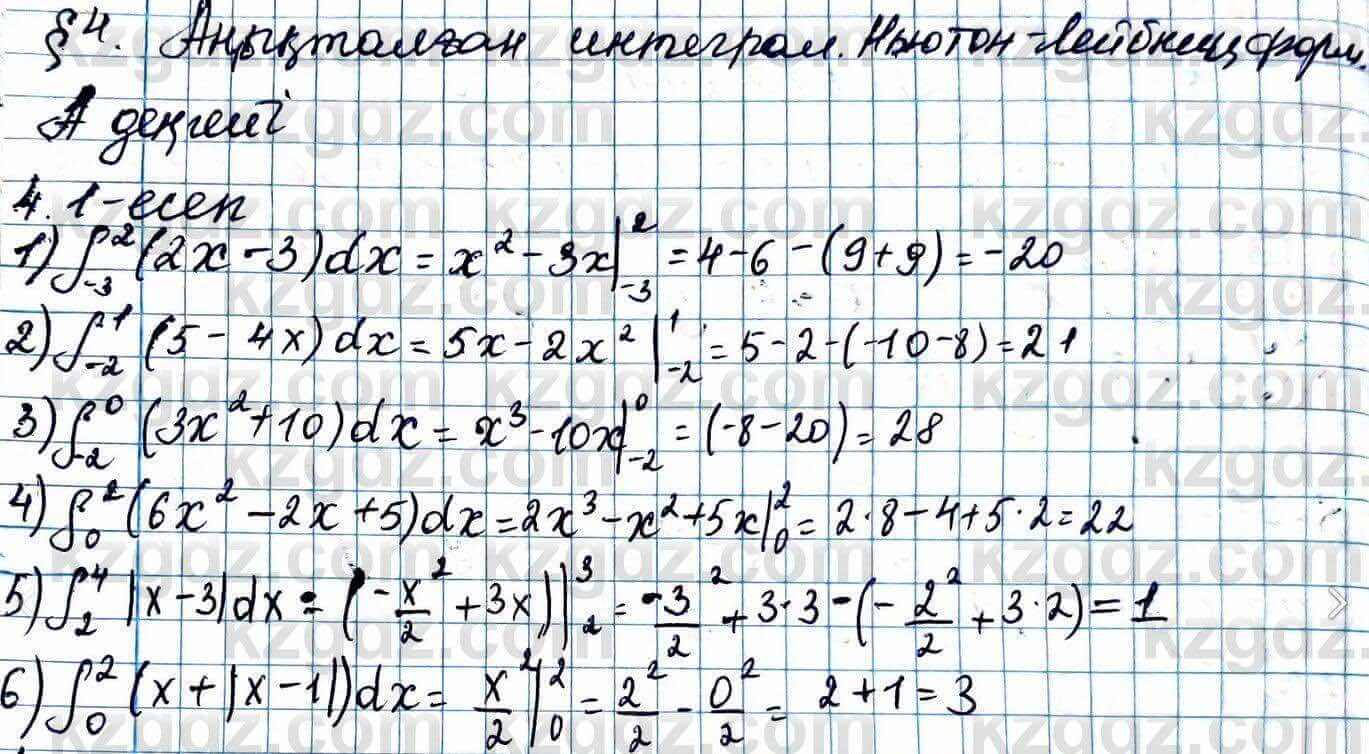 §4. Анықталған интеграл. Ньютон-Лейбниц форм.
А деңгейі
4.1-есеп
1) ∫₋₃² (2x-3)dx = x²-3x|₋₃² = 4-6-(9+9) = -20
2) ∫₋₂¹ (5-4x)dx = 5x-2x²|₋₂¹ = 5-2-(-10-8) = 21
3) ∫₋₂⁰ (3x²+10)dx = x³-10x|₋₂⁰ = (-8-20) = 28
4) ∫₀² (6x²-2x+5)dx = 2x³-x²+5x|₀² = 2·8-4+5·2 = 22
5) ∫₂⁴ |x-3|dx = (-x²/2+3x)|₂³ = -3²/2+3·3-(-2²/2+3·2) = 1
6) ∫₀² (x+|x-1|)dx = x²/2|₀² = 2²/2-0²/2 = 2+1 = 3
kzgdz.com